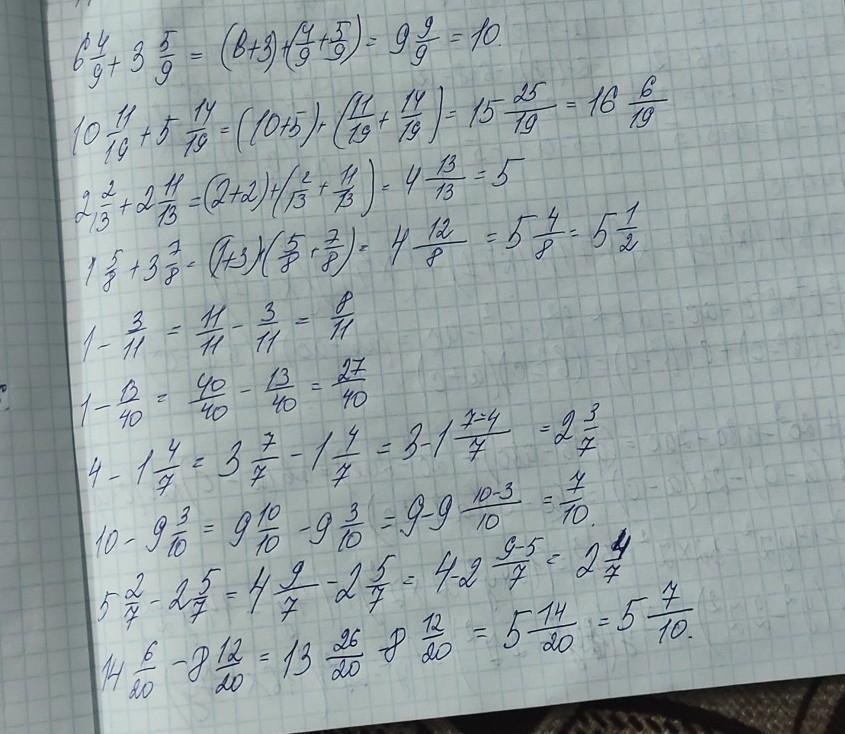 6 4/9 + 3 5/9 = (6+3)+(4/9+5/9) = 9 9/9 = 10.
10 11/19 + 5 14/19 = (10+5)+(11/19+14/19) = 15 25/19 = 16 6/19
2 2/13 + 2 11/13 = (2+2)+(2/13+11/13) = 4 13/13 = 5
1 5/8 + 3 7/8 = (1+3)+(5/8+7/8) = 4 12/8 = 5 4/8 = 5 1/2
1 - 3/11 = 11/11 - 3/11 = 8/11
1 - 13/40 = 40/40 - 13/40 = 27/40
4 - 1 4/7 = 3 7/7 - 1 4/7 = 3-1 7-4/7 = 2 3/7
10 - 9 3/10 = 9 10/10 - 9 3/10 = 9-9 10-3/10 = 7/10.
5 2/7 - 2 5/7 = 4 9/7 - 2 5/7 = 4-2 9-5/7 = 2 4/7
14 6/20 - 8 12/20 = 13 26/20 - 8 12/20 = 5 14/20 = 5 7/10.